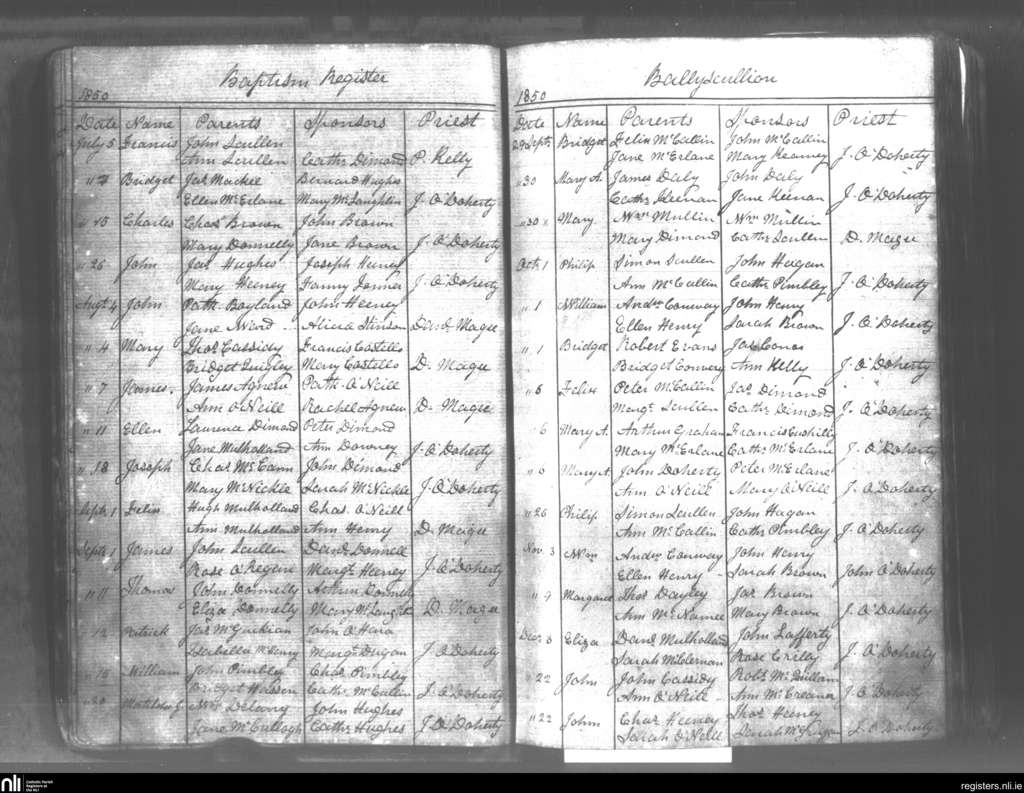 Baptism Register
1850
Date Name Parents Sponsors Priest
July 5 Francis John Scullen
Ann Scullen Cathr Dimond P. Kelly
" 7 Bridget Jas Mackee Bernard Hughes
Ellen McErlane Mary McLaughlin J. O'Doherty
" 15 Charles Chas Brown John Brown
Mary Donnelly Jane Brown J. O'Doherty
" 26 John Jas Hughes Joseph Heeney
Mary Heeney Fanny J. O'Doherty
Augt 4 John Patk Boyland John Heeney
Jane Ward Alicia Stinson Danl Magee
" 4 Mary Thos Cassidy Francis Costello
Bridget Quigley Mary Costello D. Magee
" 7 James James Agnew Patk O'Neill
Ann O'Neill Rachel Agnew D. Magee
" 11 Ellen Laurence Dimond Peter Dimond
Jane Mulholland Ann Downey J. O'Doherty
" 18 Joseph Chas McCann John Dimond
Mary McNickle Sarah McNickle J. O'Doherty
Septr 1 Felix Hugh Mulholland Chas O'Neill
Ann Mulholland Ann Henry D. Magee
Septr 1 James John Scullen Danl Donnell
Rose O'Regan Margt Heeney J. O'Doherty
" 11 Thomas John Donnelly Arthur Donnelly
Eliza Donnelly Mary McLaught D. Magee
" 12 Patrick Jas McGuckian John O'Hara
Isabella McHenry Margt Dugan J. O'Doherty
" 15 William John Pimbley Chas Pimbley
Bridget Cathr McCullin J. O'Doherty
Matilda J. Wm Delavry John Hughes
Jane McCullogh Cathr Hughes J. O'Doherty
Ballyscullion
1850
Date Name Parents Sponsors Priest
29 Septr Bridget Felix McCullin John McCullin
Jane McErlane Mary Kearney J. O'Doherty
" 30 Mary A. James Daly John Daly
Cathr Keenan Jane Keenan J. O'Doherty
" 30 Mary Wm Mullin Wm Mullin
Mary Dimond Cathr Scullen D. Magee
Octr 1 Philip Simon Scullen John Hagan
Ann McCullin Cathr Pimbley J. O'Doherty
" 1 William Andw Conway John Henry
Ellen Henry Sarah Brown J. O'Doherty
" 1 Bridget Robert Evans Jas
Bridget Convery Ann Kelly J. O'Doherty
" 6 Felix Peter McCullin Jas Dimond
Margt Scullen Cathr Dimond J. O'Doherty
" 6 Mary A. Arthur Graham Francis Cushilly
Mary McErlane Cathr McErlane J. O'Doherty
" 6 Mary A. John Doherty Peter McErlane
Ann O'Neill Mary O'Neill J. O'Doherty
" 26 Philip Simon Scullen John Hagan
Ann McCullin Cathr Pimbley J. O'Doherty
Nov. 3 Wm Andw Conway John Henry
Ellen Henry Sarah Brown John O'Doherty
" 9 Margaret Thos Dayley Jas Brown
Ann McNamee Mary Brown J. O'Doherty
Decr 8 Eliza Danl Mulholland John Lafferty
Sarah McClernan Rose Crilly J. O'Doherty
" 22 John John Cassidy Robt McQuillan
Ann O'Neill Ann McCreanor J. O'Doherty
" 22 John Chas Heeney Thos Heeney
Sarah O'Neill Sarah J. O'Doherty
nli Catholic Parish Registers at the NLI
registers.nli.ie